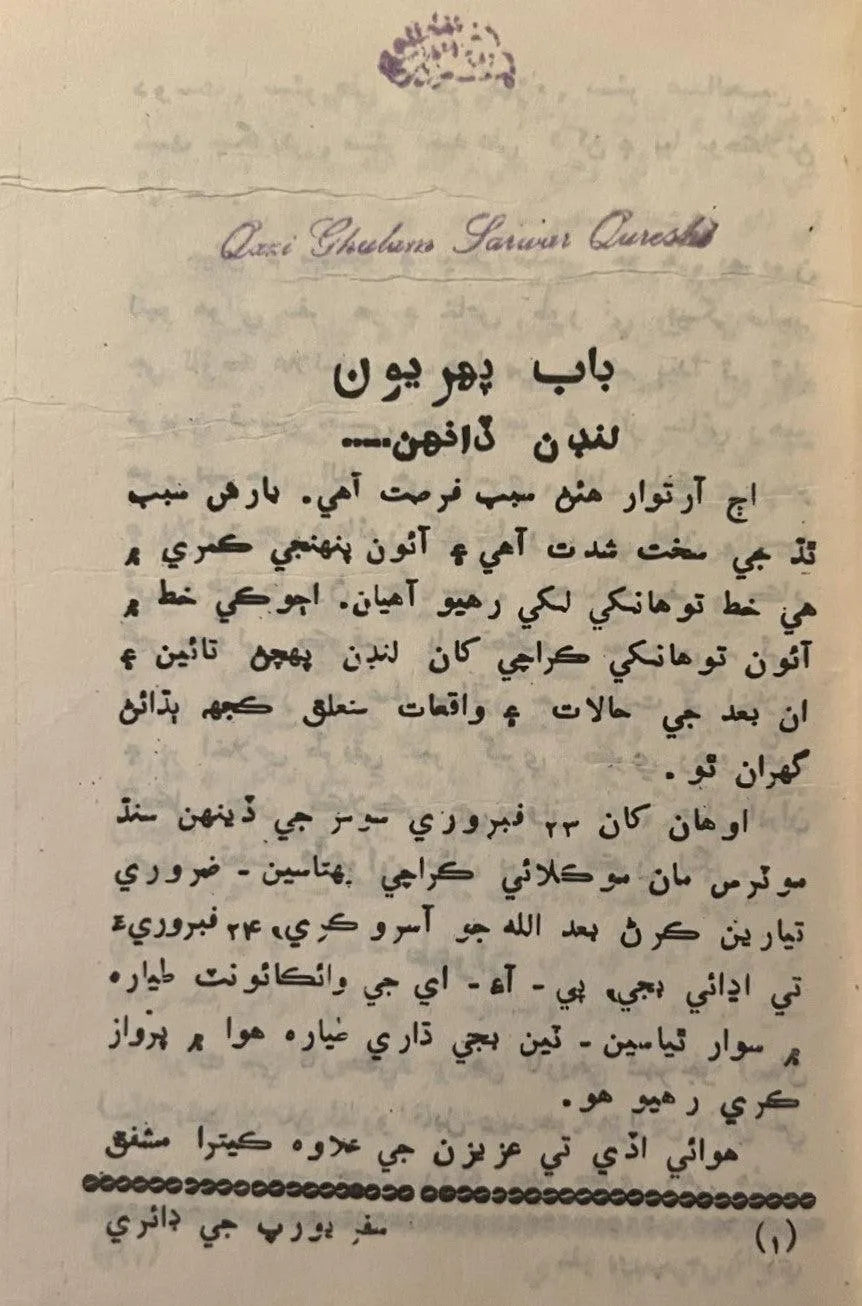 Qazi Ghulam Sarwar Qureshi
باب پهريون
لنڊن ڏانهن.....
اڄ آرتوار هئڻ سبب فرصت آهي. بارش سبب
ٿڌ جي سخت شدت آهي ۽ آئون پنهنجي ڪمري ۾
هي خط توهانکي لکي رهيو آهيان. اڄوڪي خط ۾
آئون توهانکي ڪراچي کان لنڊن پهچڻ تائين ۽
ان بعد جي حالات ۽ واقعات متعلق ڪجهه ٻڌائڻ
گهران ٿو .
اوهان کان ٢٣ فبروري سومر جي ڏينهن سنڌ
موٽرس مان موڪلائي ڪراچي پهتاسين - ضروري
تيارين ڪرڻ بعد الله جو آسرو ڪري، ٢۴ فبروريءَ
تي اڍائي بجي، پي - آءِ - اي جي وائڪائونٽ طياره
۾ سوار ٿياسين - ٽين بجي ڌاري طياره هوا ۾ پرواز
ڪري رهيو هو.
هوائي اڏي تي عزيزن جي علاوه ڪيترا مشفق
سفر يورپ جي ڊائري
(١)